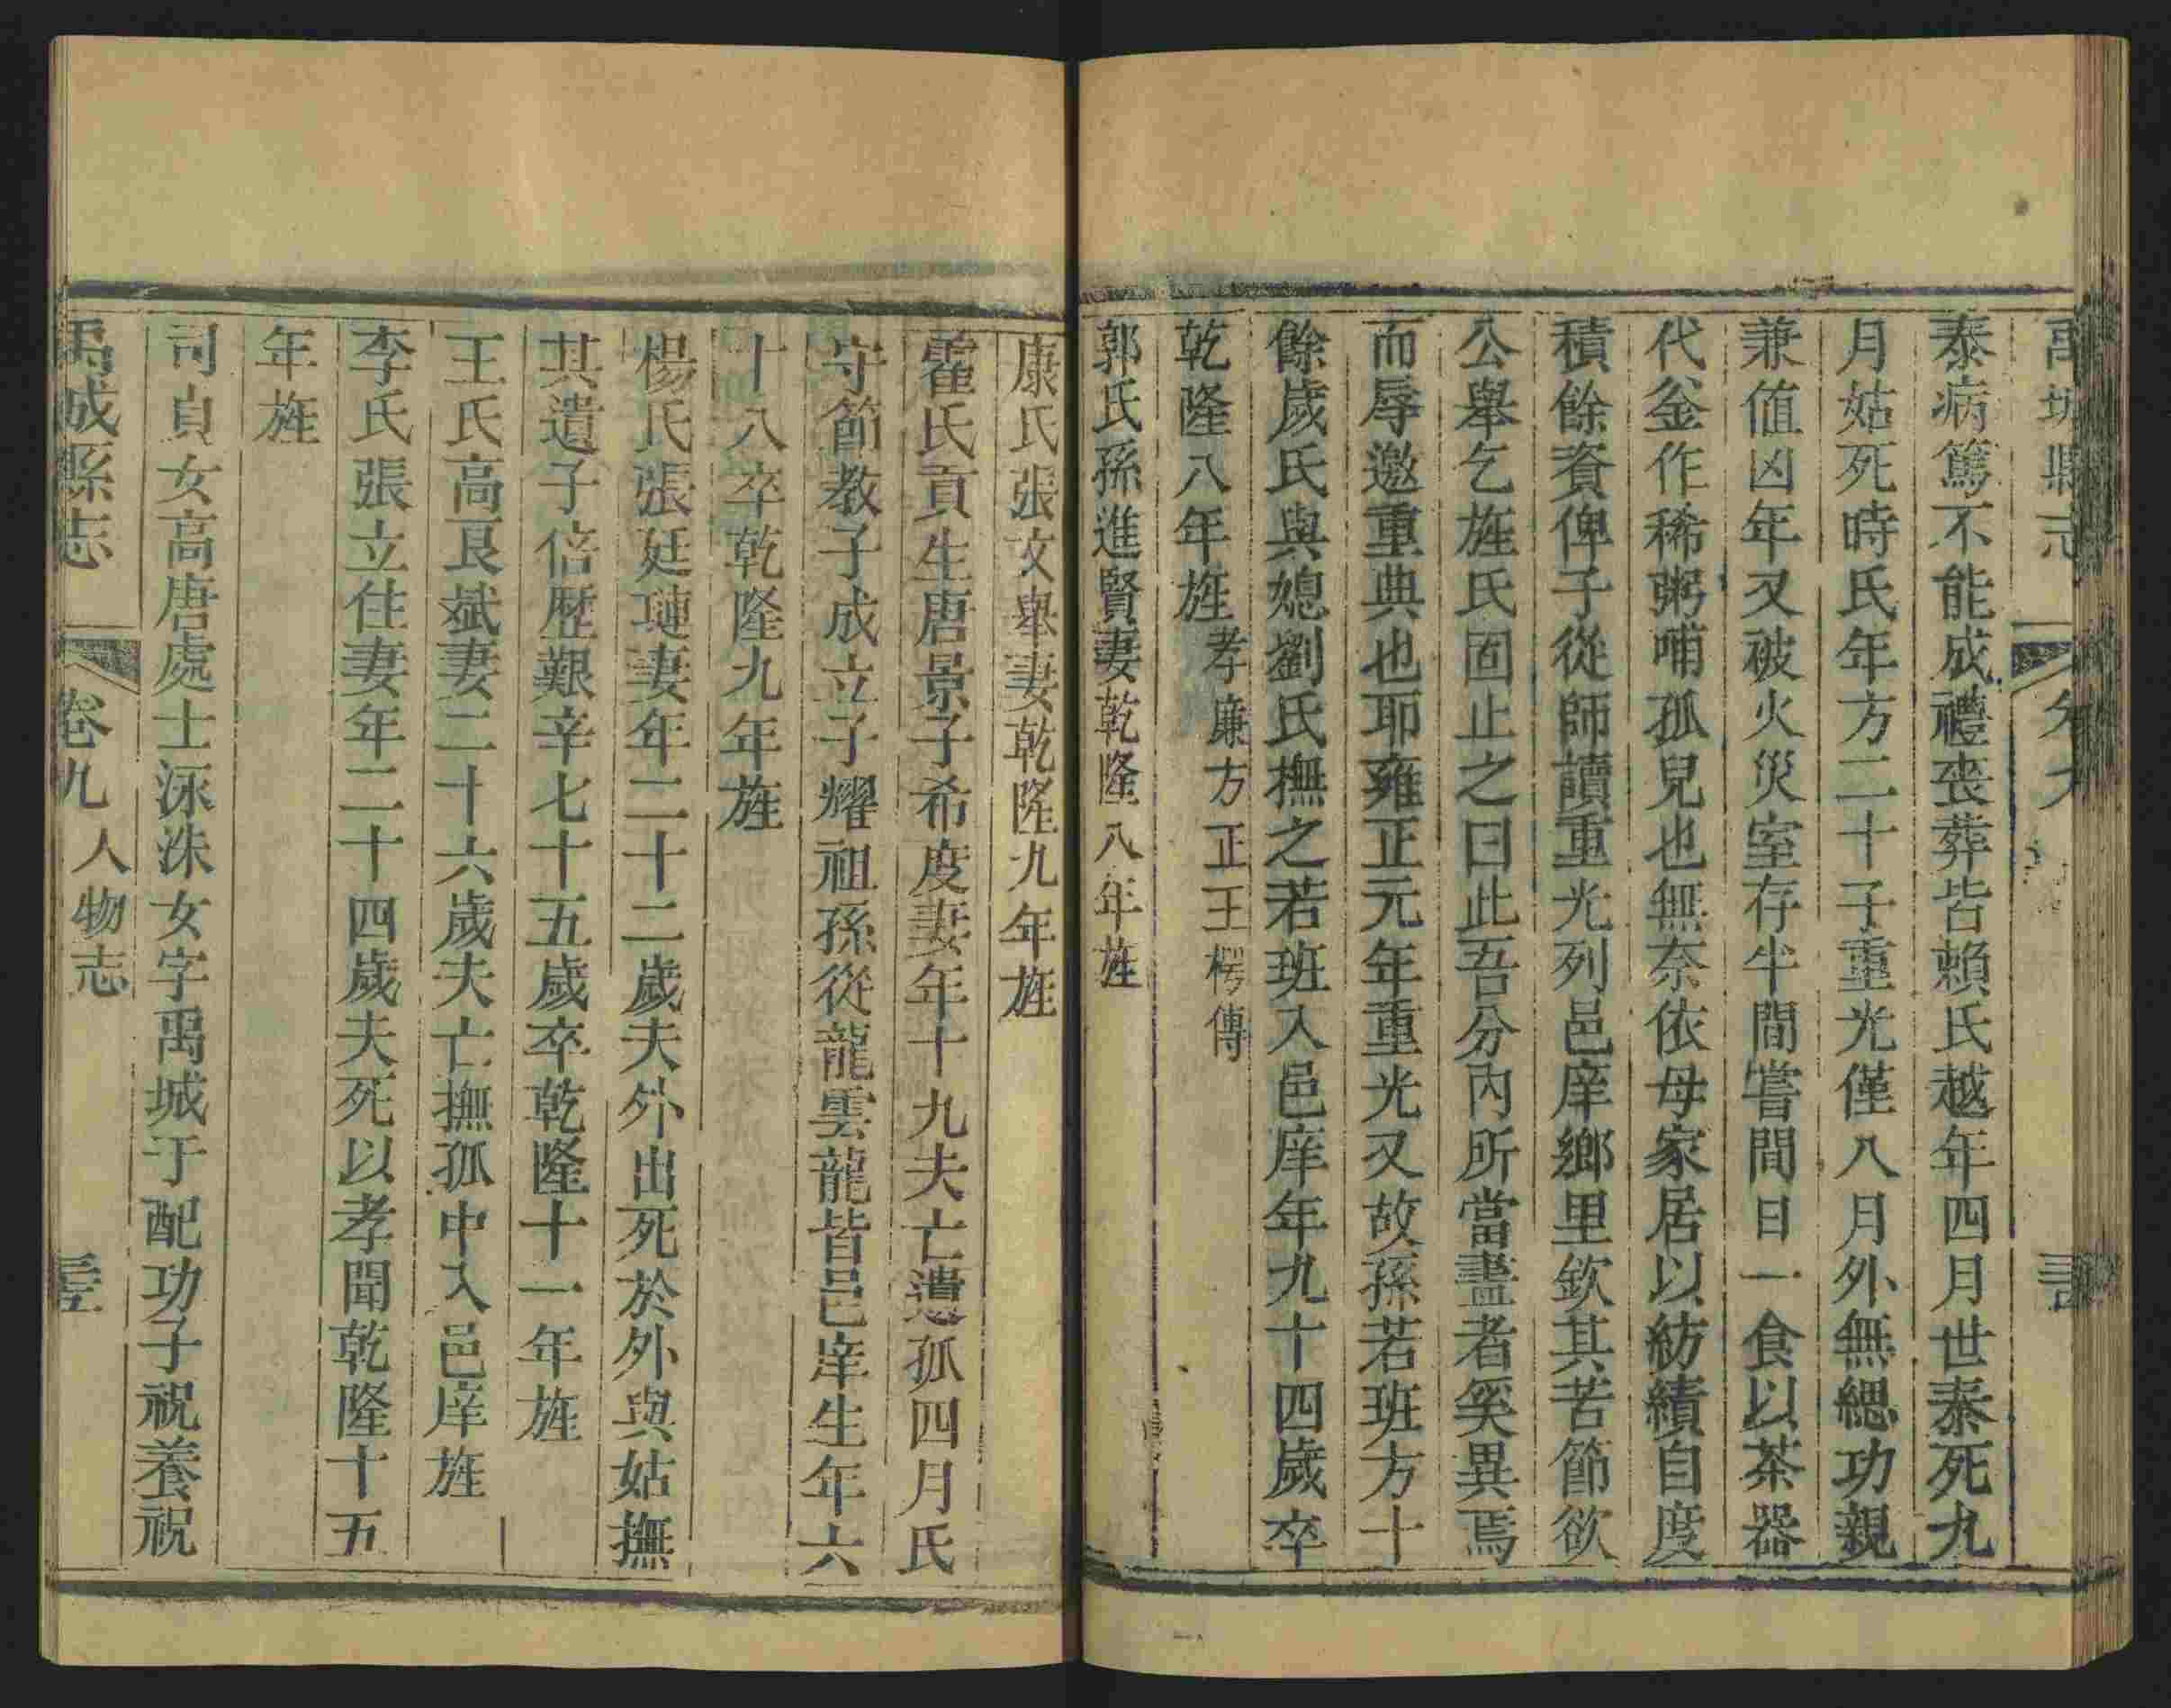 禹城縣志
泰病篤不能成禮喪葬皆賴氏越年四月世泰死九
月姑死時氏年方二十子重光僅八月外無緦功親
兼值凶年又被火災室存半間嘗間日一食以茶器
代釡作稀粥哺孤兒也無奈依母家居以紡績自度
積餘資俾子從師讀重光列邑庠鄉里欽其苦節欲
公舉乞旌氏固止之曰此吾分內所當盡者奚異焉
而辱邀重典也耶雍正元年重光又故孫若班方十
餘歲氏與媳劉氏撫之若班入邑庠年九十四歲卒
乾隆八年旌孝廉方正王楞傳
郭氏孫進賢妻乾隆八年旌
康氏張文舉妻乾隆九年旌
霍氏貢生唐景子希度妻年十九夫亡遺孤四月氏
守節教子成立子耀祖孫從龍雲龍皆邑庠生年六
十八卒乾隆九年旌
楊氏張廷璉妻年二十二歲夫外出死於外與姑撫
其遺子倍歷艱辛七十五歲卒乾隆十一年旌
王氏高艮斌妻二十六歲夫亡撫孤中入邑庠旌
李氏張立住妻年二十四歲夫死以孝聞乾隆十五
年旌
司貞女高唐處士泳洙女字禹城于配功子祝養祝
禹城縣志 卷九 人物志